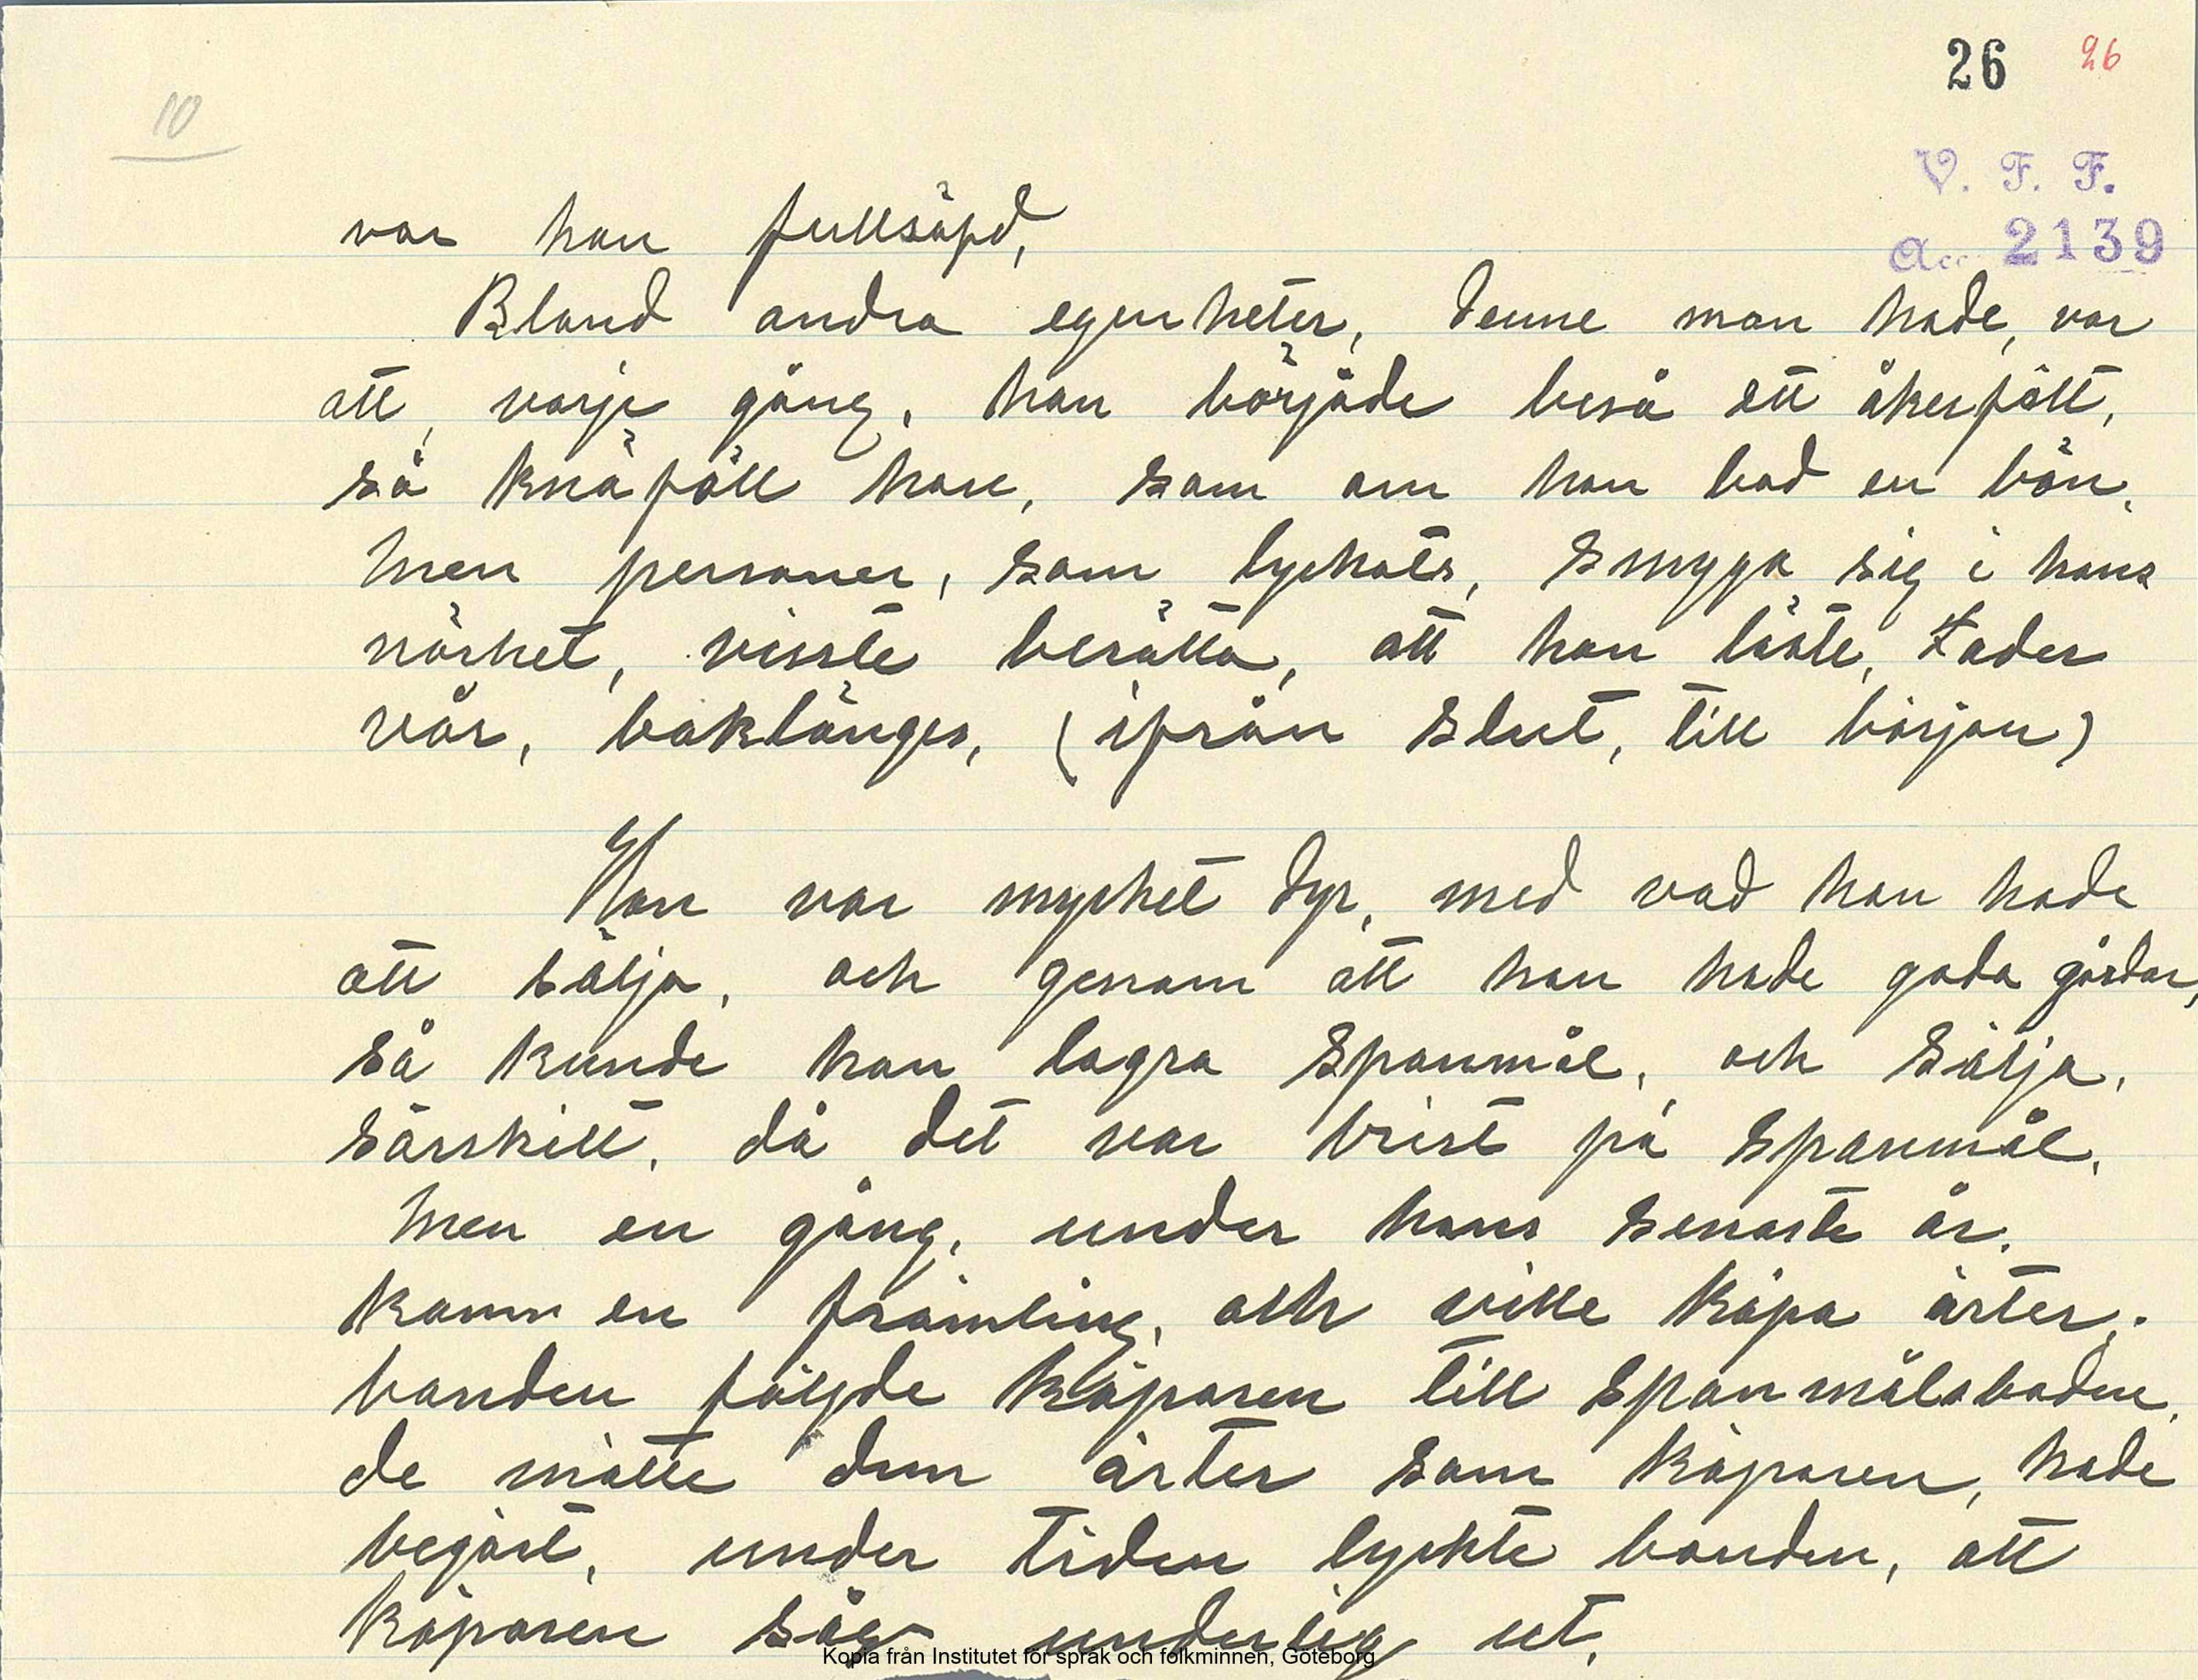 26 26
10
V. F. F.
Acc. 2139
var han fullsöpd,
Bland andra egenheter, denne man hade, var
att, varje gång, han började beså ett åkerfält,
så knäföll han, som om han bad en bön,
men personer, som lyckats, smyga sig i hans
närhet, visste berätta, att han läste, Fader
vår, baklänges, (ifrån slut, till början)
Han var mycket dyr, med vad han hade
att sälja, och genom att han hade goda gårdar,
så kunde han lagra spanmål, och sälja,
särskilt, då det var brist på spanmål,
men en gång, under hans senaste år,
kamm en främling, och ville köpa ärter,.
bonden följde köparen till spanmålsboden,
de mätte dem ärter som köparen, hade
begärt, under tiden tyckte bonden, att
köparen såg underlig ut,
Kopia från Institutet för språk och folkminnen, Göteborg